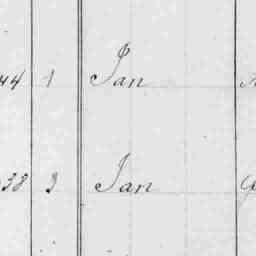 44 1 Jan
38 3 Jan